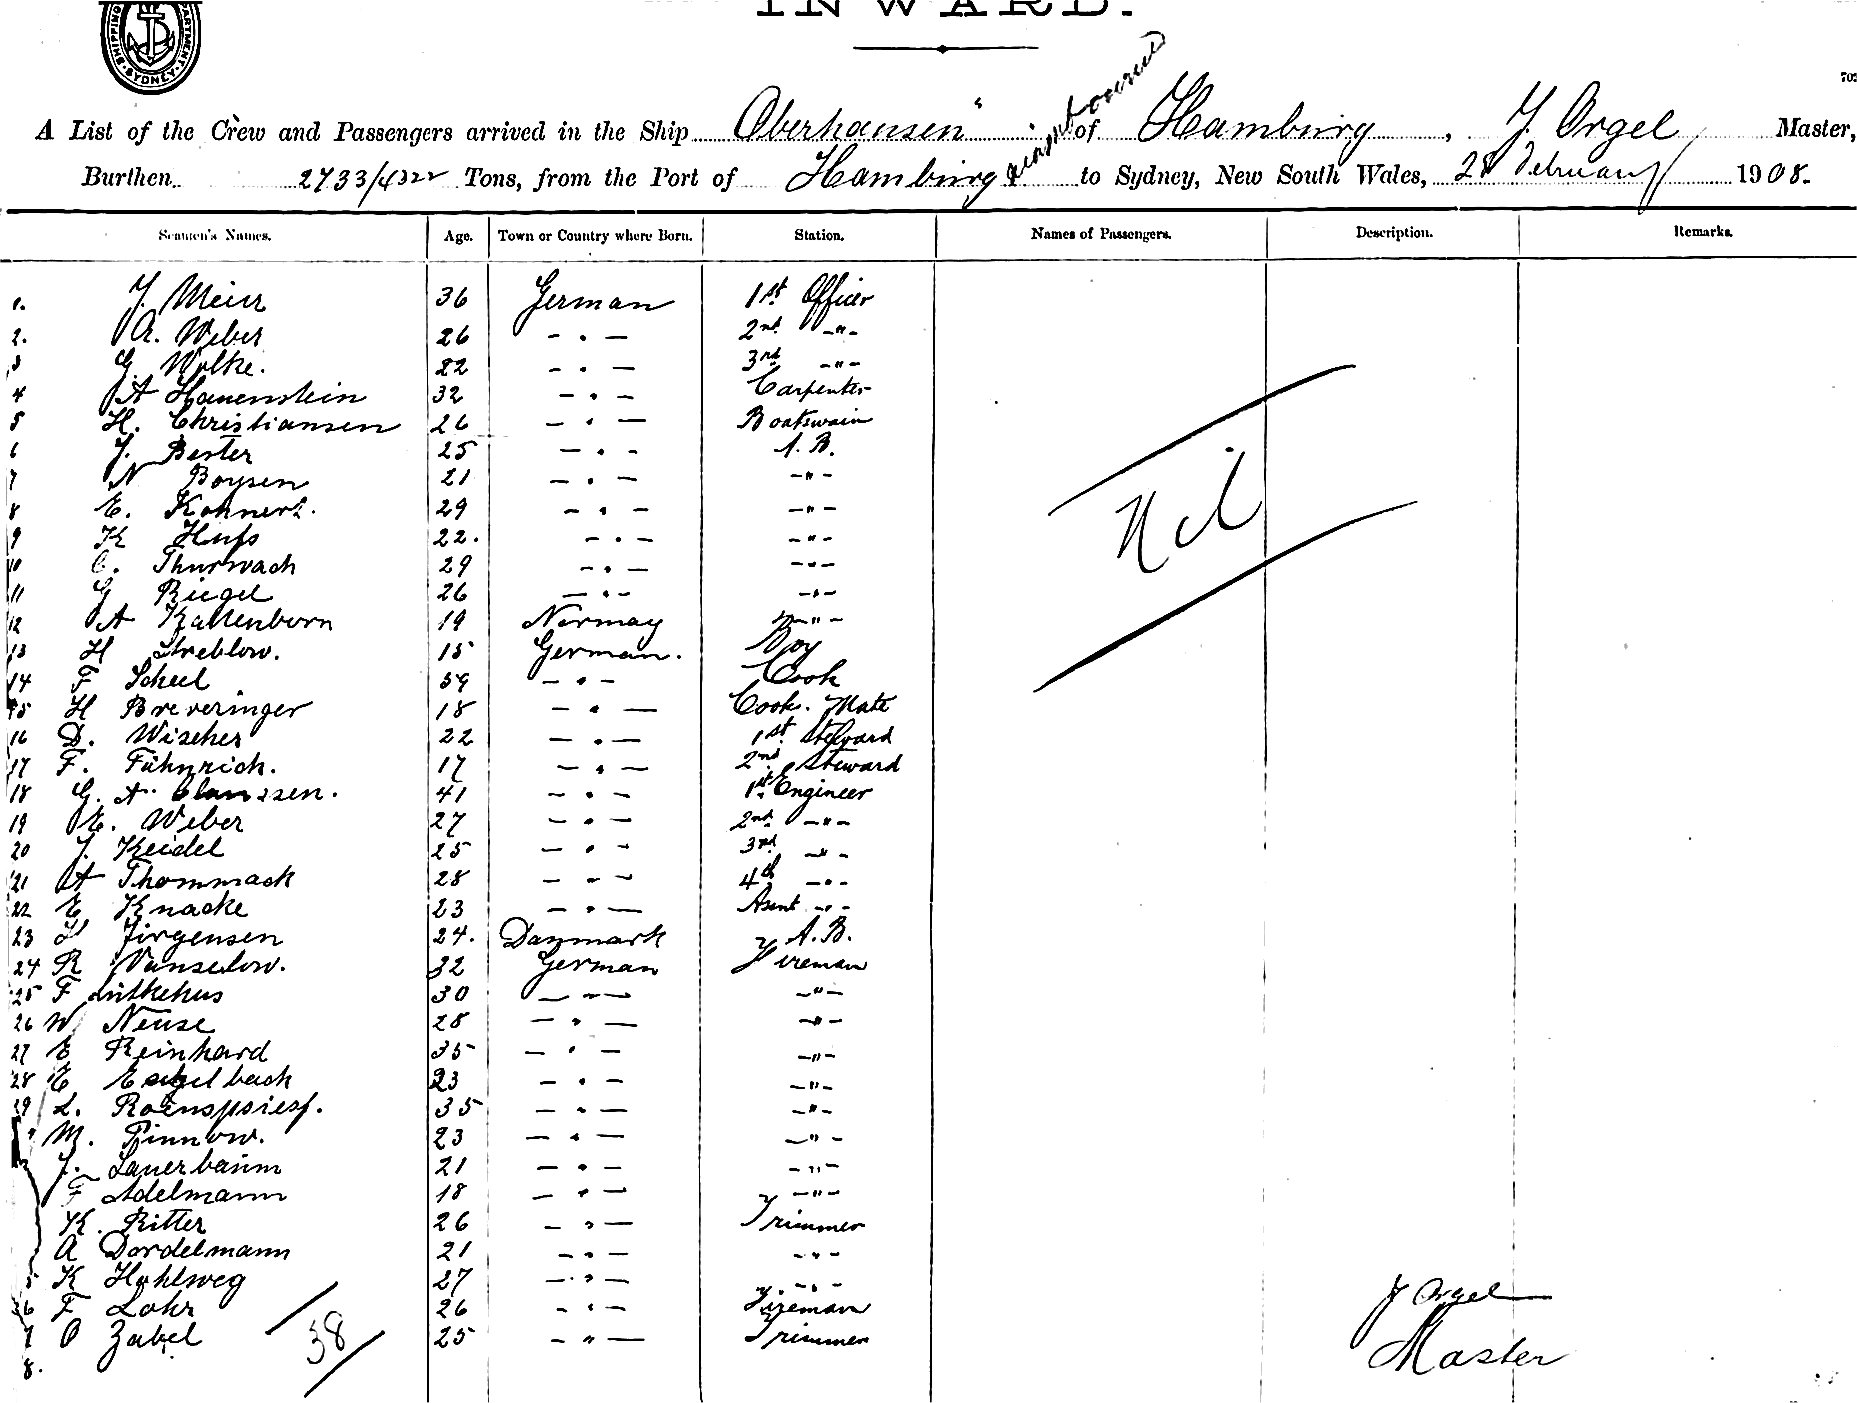 INWARD.
SHIPPING DEPARTMENT. SYDNEY.
A List of the Crew and Passengers arrived in the Ship "Oberhausen" of Hamburg, J. Orgel Master,
Burthen 2733/4322 Tons, from the Port of Hamburg to Sydney, New South Wales, 28 February 1908.
Seamen's Names. Age. Town or Country where Born. Station. Names of Passengers. Description. Remarks.
1. J. Meier 36 German 1st Officer
2. A. Weber 26 - " - 2nd - " -
3 G. Wolke. 22 - " - 3rd - " -
4 A Hauenstein 32 - " - Carpenter
5 H. Christiansen 26 - " - Boatswain
6 J. Bester 25 - " - A. B.
7 N Boysen 21 - " - - " -
8 E. Kohnert. 29 - " - - " -
9 K Hufs 22. - " - - " -
10 C. Thurwach 29 - " - - " -
11 G Riegel 26 - " - - " -
12 A Kaltenborn 19 Norway - " -
13 H Streblow. 15 German. Boy
14 F Scheel 59 - " - Cook
15 H Breveringer 18 - " - Cook. Mate
16 D. Wischer 22 - " - 1st Steward
17 F. Fähnrich. 17 - " - 2nd Steward
18 G. A. Claussen. 41 - " - 1st Engineer
19 E. Weber 27 - " - 2nd - " -
20 J. Keidel 25 - " - 3rd - " -
21 A Thommack 28 - " - 4th - " -
22 E Knacke 23 - " - Assnt - " -
23 Jürgensen 24. Danmark A. B.
24 R Vanselow. 32 German Fireman
25 F Lütkehus 30 - " - - " -
26 W Neuse 28 - " - - " -
27 E Reinhard 35 - " - - " -
28 E Engelbach 23 - " - - " -
29 L. 35 - " - - " -
M. Pinnow. 23 - " - - " -
J. Lauerbaum 21 - " - - " -
F Adelmann 18 - " - - " -
K. Ritter 26 - " - Trimmer
A Dordelmann 21 - " - - " -
5 K Hohlweg 27 - " - - " -
36 F Lohr 26 - " - Fireman
7 O Zabel 25 - " - Trimmer
8.
38
Nil
J Orgel
Master